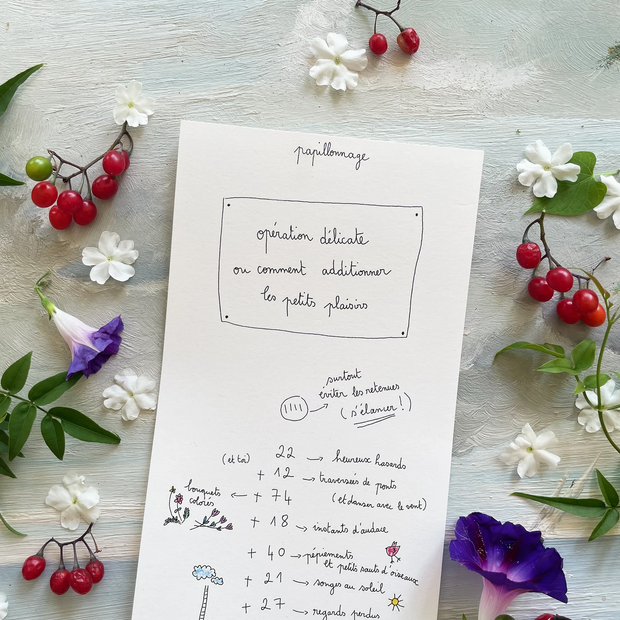 papillonnage
opération délicate
ou comment additionner
les petits plaisirs
surtout
éviter les retenues
(s'élancer!)
(et toi) 22 → heureux hasards
+ 12 → traversées de ponts
(et danser avec le vent)
bouquets
colorés ← + 74
+ 18 → instants d'audace
+ 40 → pépiements
et petits sauts d'oiseaux
+ 21 → songes au soleil
+ 27 → regards perdus